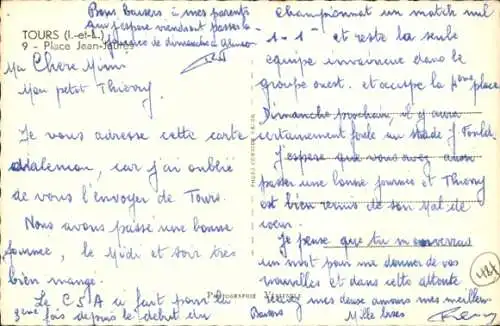 TOURS (I.-et-L.)
9 - Place Jean-Jaurès
Bons baisers à mes parents
qui j'espère viendront passer la
journée de dimanche à
Ma Chère Mimi
Mon petit Thierry
Je vous adresse cette carte
d'alencon, car j'ai oublié
de vous l'envoyer de Tours.
Nous avons passé une bonne
journée, le Midi et soir très
bien mangé.
Le C S A a fait pour la
3ème fois depuis le début du
championnat un match nul
1-1- et reste la seule
équipe invaincue dans le
groupe ouest. et occupe la place
Dimanche prochain, il y aura
certainement foule au stade J Fould
J'espère que vous avez aussi
passer une bonne journée et Thierry
est bien remis de son Mal de
coeur.
Je pense que tu m'enverras
un mot pour me donner de vos
nouvelles et dans cette attente
mes deux amours mes meilleurs
Baisers Mille bises
Rémy